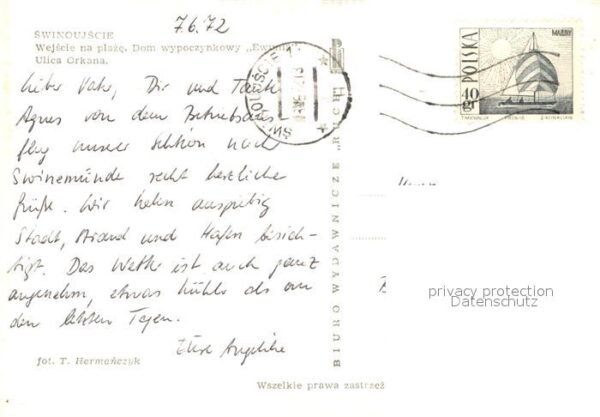 7.6.72
ŚWINOUJŚCIE
Wejście na plażę. Dom wypoczynkowy „Ewunia"
Ulica Orkana.
Lieber Vater, Dir und Tante
Agnes von dem Betriebsaus-
flug unserer Sektion nach
Swinemünde recht herzliche
Grüße. Wir haben ausgiebig
Stadt, Strand und Hafen besich-
tigt. Das Wetter ist auch ganz
angenehm, etwas kühler als an
den letzten Tagen.
Eure Angelika
fot. T. Hermańczyk
BIURO WYDAWNICZE „RUCH"
Wszelkie prawa zastrzeż
POLSKA
40
GR
MAŁY
privacy protection
Datenschutz